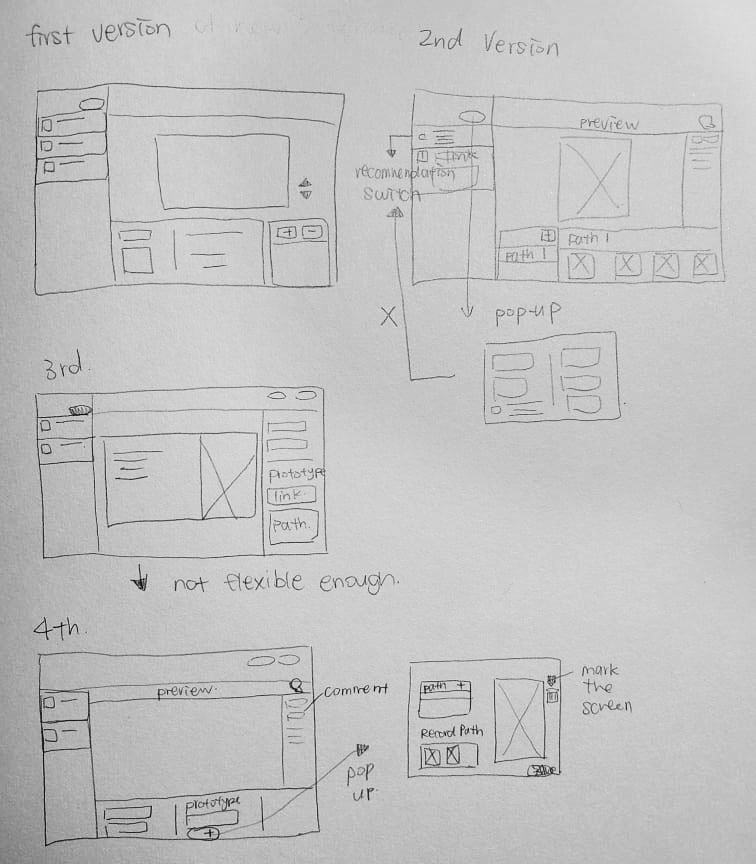 first version
2nd Version
preview
link
recommendation
switch
path 1
path 1
X
pop-up
3rd.
prototype
link.
path.
not flexible enough.
4th.
preview.
comment
prototype
+
pop
up.
path +
Record Path
save
mark
the
screen